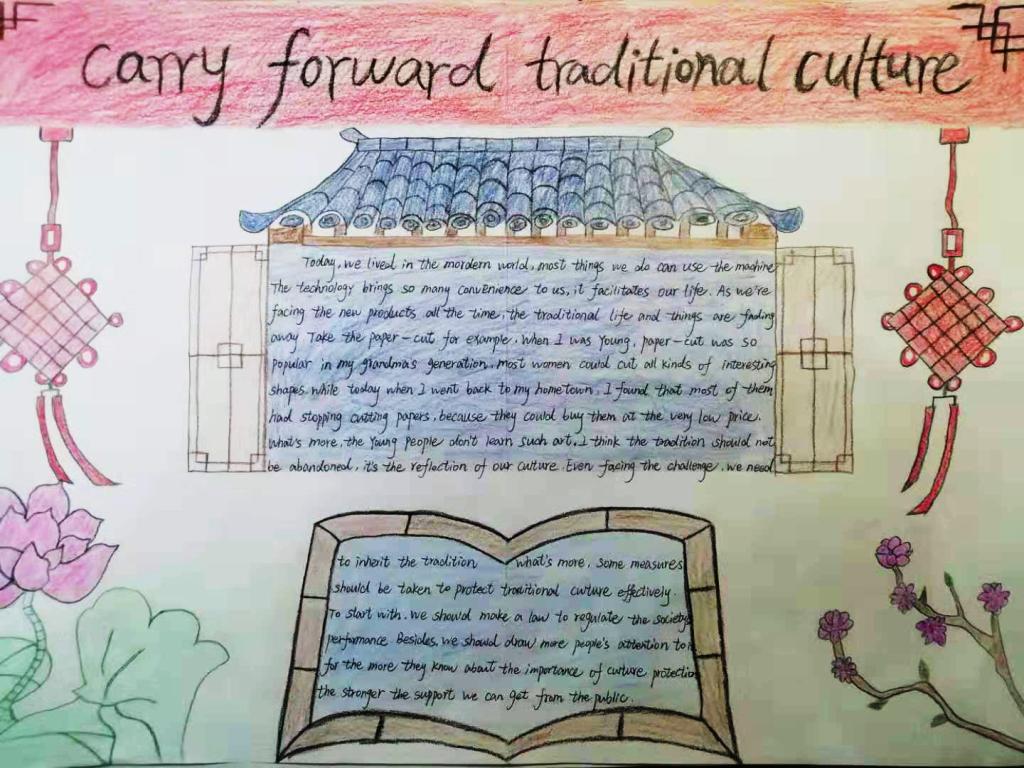 Carry forward traditional culture
Today, we lived in the mordern world, most things we do can use the machine
The technology brings so many convenience to us, it facilitates our life. As we're
facing the new products all the time, the traditional life and things are fading
away Take the paper-cut for example. When I was young, paper-cut was so
popular in my grandma's generation, most women could cut all kinds of interesting
shapes. while today when I went back to my hometown, I found that most of them
had stopping cutting papers, because they could buy them at the very low price.
what's more, the young people don't learn such art. I think the tradition should not
be abandoned, it's the reflection of our culture. Even facing the challenge, we need
to inherit the tradition what's more, some measures
should be taken to protect traditional culture effectively.
To start with, we should make a law to regulate the society
performance. Besides, we should draw more people's attention to
for the more they know about the importance of culture protection
the stronger the support we can get from the public.